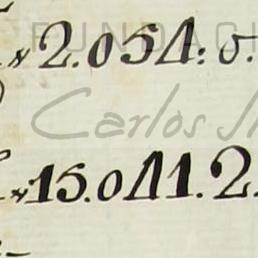 FUNDACI
2.054:5.
Carlos
15.041.2.